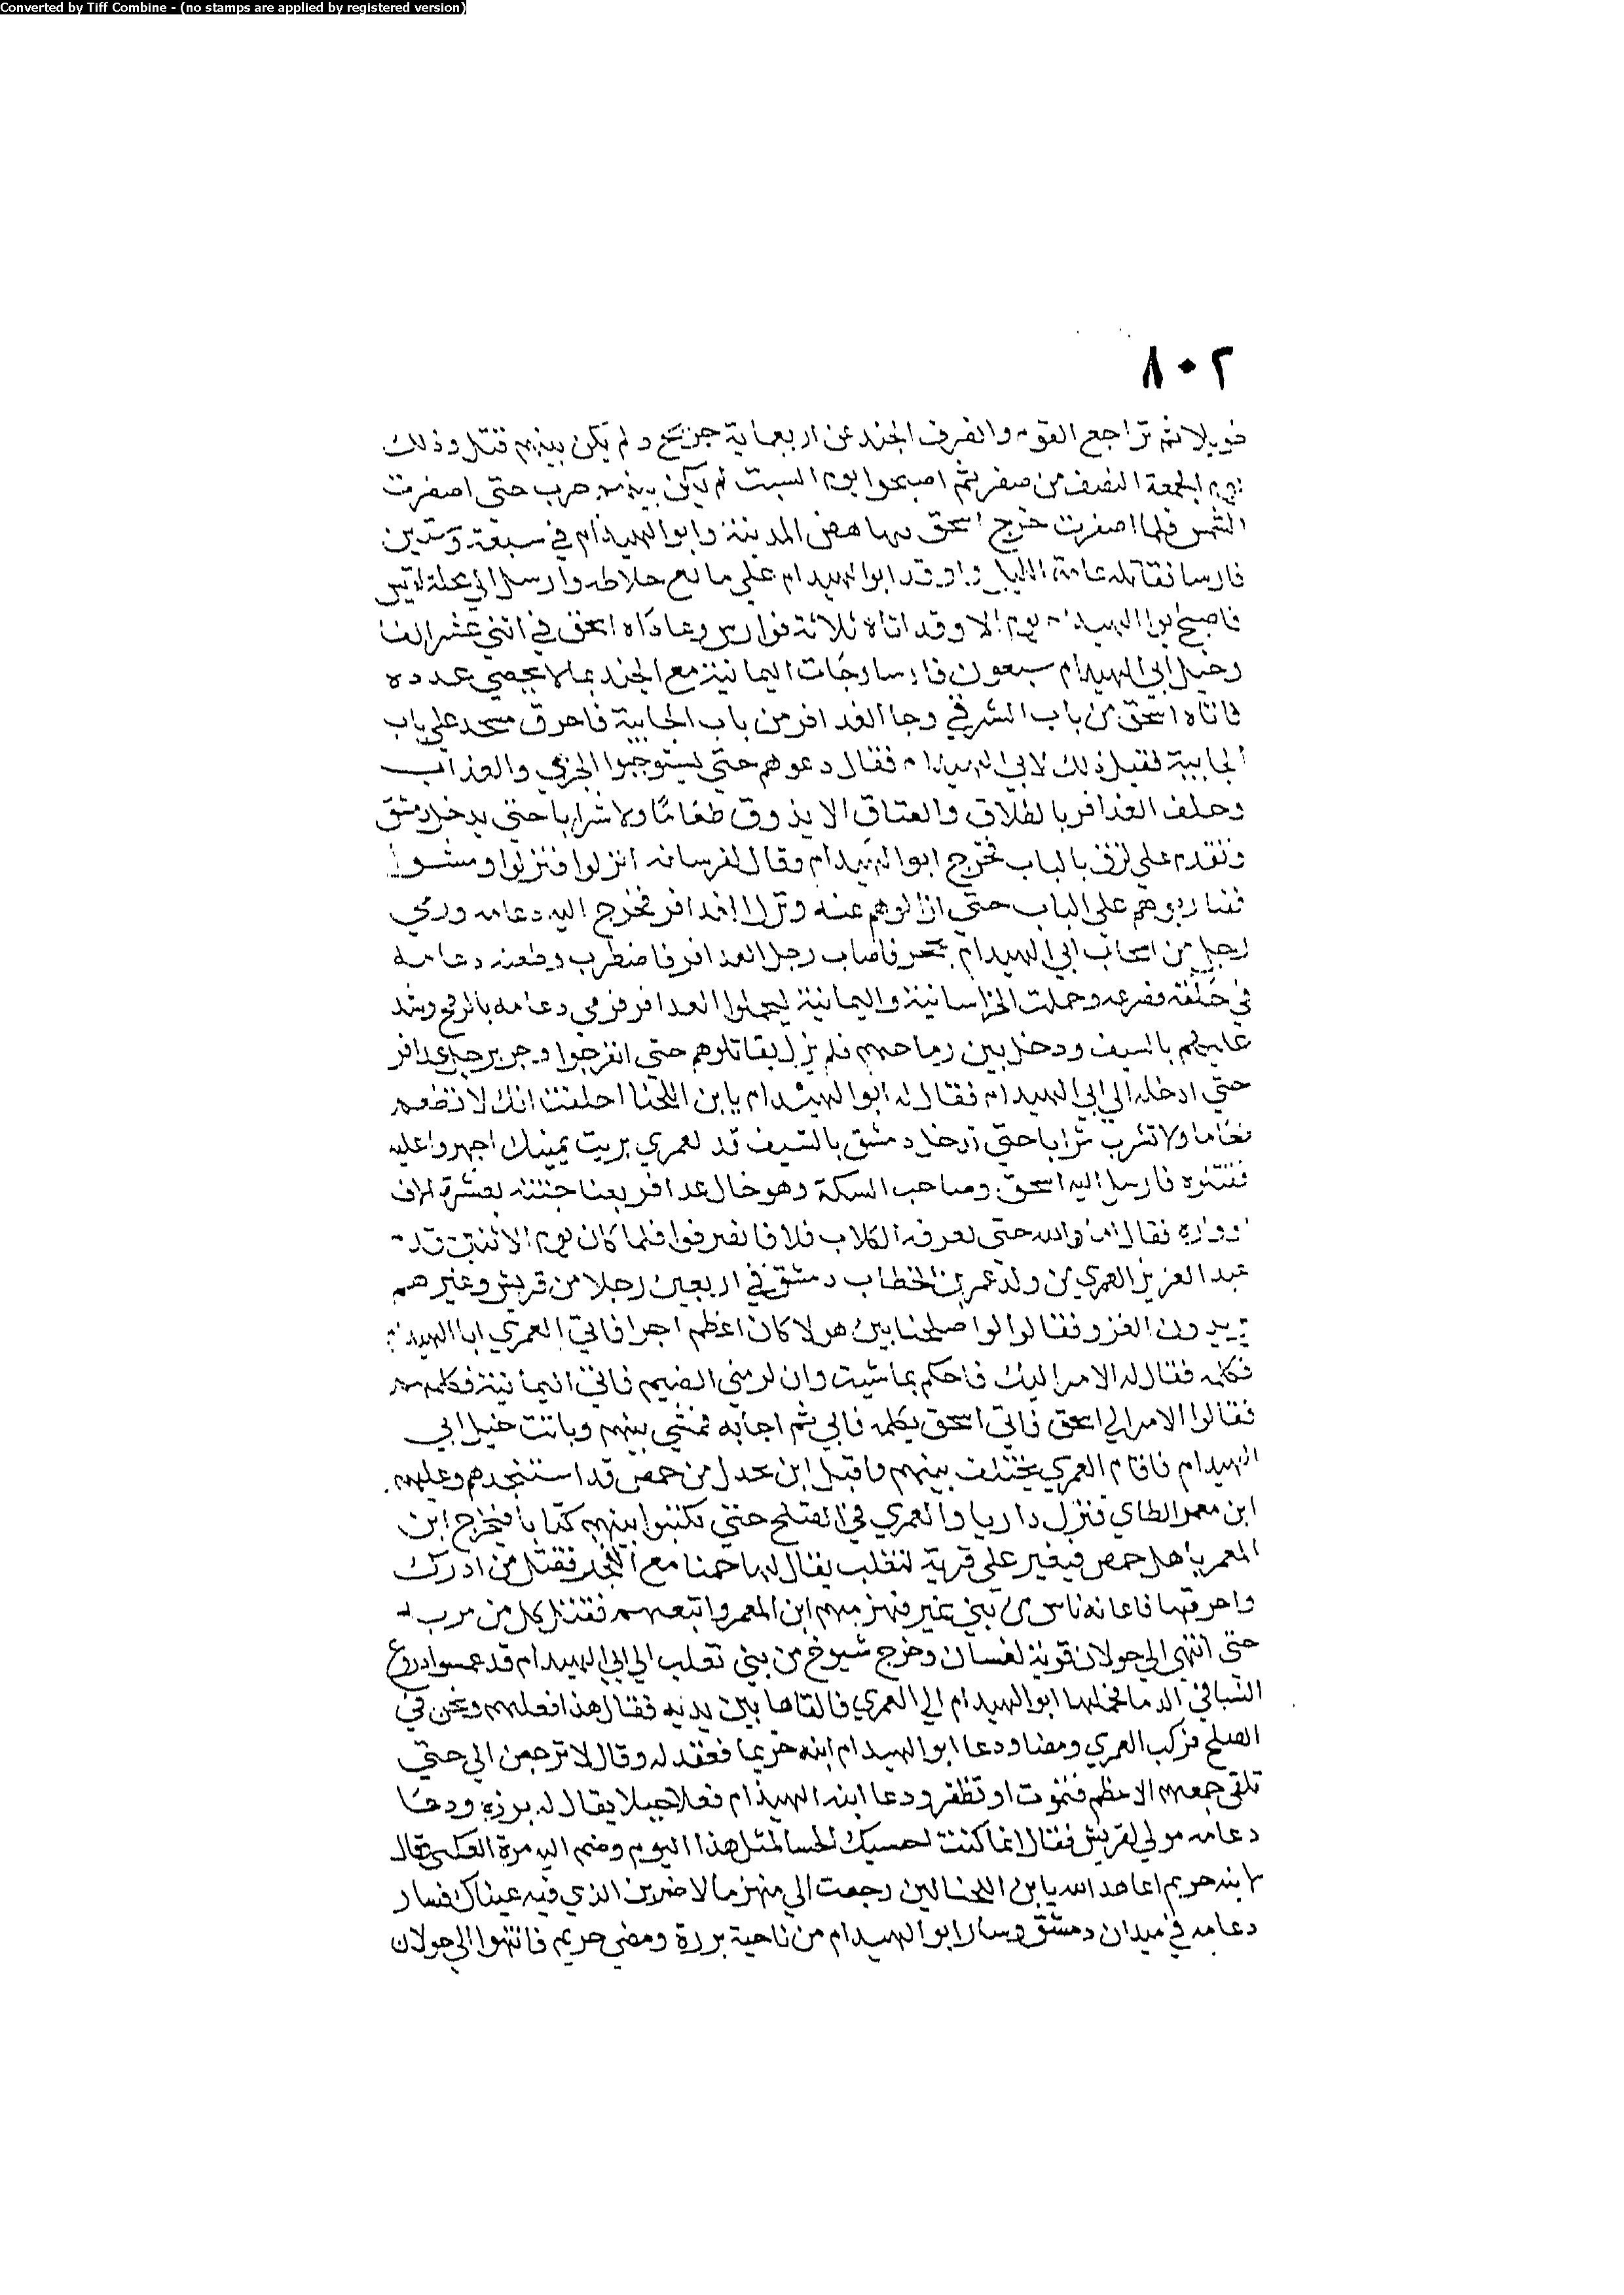 Converted by Tiff Combine - (no stamps are applied by registered version)
٨٠٢
طويلا ثم تراجع القوم وانصرف الجند عن اربعماية جريح ولم يكن بينهم قتل وذلك
يوم الجمعة النصف من صفر ثم اصبحوا يوم السبت لم يكن بينهم حرب حتى اصفرت
الشمس فلما اصفرت خرج اسحق المدينة وابو الهيدام في سبعة وستين
فارسا عامة الليل واوقد ابو الهيدام علي وارسل الي
فاصبح ابو الهيدام يوم الا وقد اتاه ثلاثة فوارس وعاداه اسحق في اثني عشر الفا
وخيل ابي الهيدام سبعون فارسا وجات اليمانية مع الجند بما لا يحصي عدده
فاتاه اسحق من باب الشرقي وجا العدافر من باب الجابية فاحرق مسجد علي باب
الجابية فقيل ذلك لابي الهيدام فقال دعوهم حتي يستوجبوا الخزي والعذاب
وحلف العذافر بالطلاق والعتاق الا يذوق طعاما ولا شرابا حتي يدخل دمشق
وتقدم علي لزق بالباب فخرج ابو الهيدام وقال لفرسانه انزلوا فنزلوا ومشوا
فضاربوهم علي الباب حتي ازالوهم عنه ونزل العذافر فخرج اليه دعامه ورمي
رجل من اصحاب ابي الهيدام بحجر فاصاب رجل العذافر فاضطرب وطعنه دعامه
في حلقه فصرعه وحملت الخراسانية واليمانية ليحملوا العدافر فرمي دعامه بالرمح وشد
عليهم بالسيف ودخل بين رماحهم فلم يزل يقاتلوهم حتي انفرجوا وجر برجل عدافر
حتي ادخله الي ابي الهيدام فقال له ابو الهيدام يابن اللخنا احلفت انك لا تطعم
طعاما ولا تشرب شرابا حتي تدخل دمشق بالسيف قد لعمري بريت يمينك اجهزوا عليه
فقتلوه فارسل اليه اسحق وصاحب السكة وهو خال عدافر بعنا جثته بعشرة الاف
فقال اما والله حتي تعرفه الكلاب فلا فانصرفوا فلما كان يوم الاثنين قدم
عبد العزيز العمري من ولد عمر بن الخطاب دمشق في اربعين رجلا من قريش وغيرهم
يريدون الغزو فقالوا لو اصلحنا بين هولا كان اعظم اجرا فاتي العمري ابا الهيدام
فكلمه فقال له الامر اليك فاحكم بما شيت وان لزمني الضيم فاتي اليمانية فكلمهم
فقالوا الامر الي اسحق فاتي اسحق يكلمه فابي ثم اجابه فمشي بينهم وباتت خيل ابي
الهيدام فاقام العمري يختلف بينهم واقبل ابن بحدل من حمص قد استنجدهم وعليهم
ابن معمر الطاي فنزل داريا والعمري في الصلح حتي يكتبوا بينهم كتابا فيخرج ابن
المعمر باهل حمص فيغير علي قرية لتغلب يقال لها مع فقتل من ادرك
واحرقها فاعانه ناس من بني نمير فهزمهم ابن المعمر واتبعهم فقتل كل من مر به
حتي انتهي الي جولان قرية لغسان وخرج شيوخ من بني تغلب الي ابي الهيدام قد دروع
النسا في الدما فحملها ابو الهيدام الي العمري فالقاها بين يديه فقال هذا فعلهم ونحن في
الصلح فركب العمري ومضا ودعا ابو الهيدام ابنه خريما فعقد له وقال لا ترجعن الي حتي
تلقي جمعهم الاعظم فتموت او تظفر ودعا ابنه الهيدام فعلا جبيلا يقال له برزه ودعا
دعامه مولي لقريش فقال انما كنت لمثل هذا اليوم وضم اليه مرة العكي قال
لابنه خريم اعاهد الله يابن اللخنا لين رجعت الي منهزما لاضربن الذي فيه عيناك فسار
دعامه في ميدان دمشق وسار ابو الهيدام من ناحية برزة ومضي خريم فانتهوا الي جولان